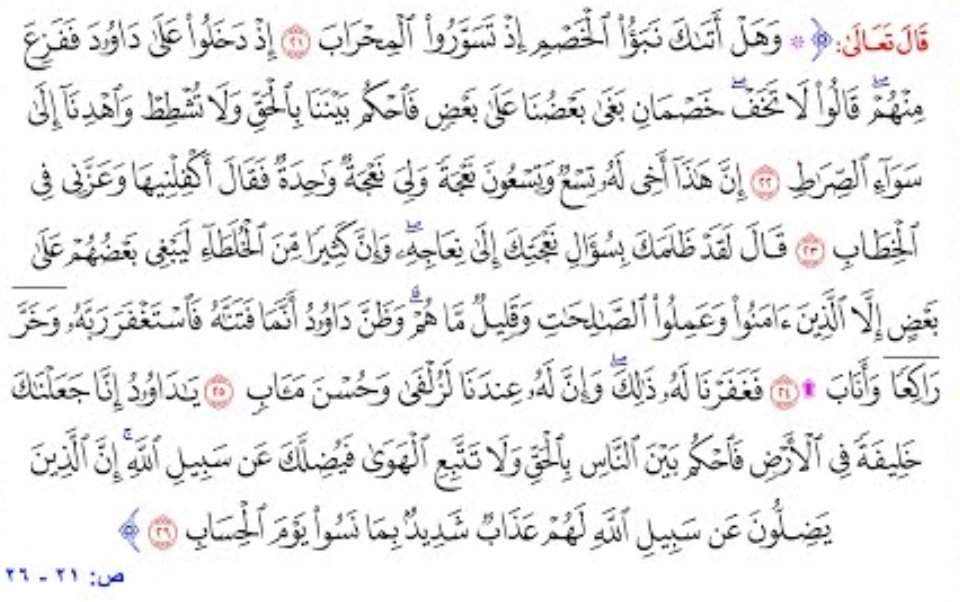 قَالَ تَعَالَىٰ: ﴿ ۞ وَهَلْ أَتَىٰكَ نَبَؤُا۟ ٱلْخَصْمِ إِذْ تَسَوَّرُوا۟ ٱلْمِحْرَابَ ٢١ إِذْ دَخَلُوا۟ عَلَىٰ دَاوُۥدَ فَفَزِعَ
مِنْهُمْ ۖ قَالُوا۟ لَا تَخَفْ ۖ خَصْمَانِ بَغَىٰ بَعْضُنَا عَلَىٰ بَعْضٍ فَٱحْكُم بَيْنَنَا بِٱلْحَقِّ وَلَا تُشْطِطْ وَٱهْدِنَآ إِلَىٰ
سَوَآءِ ٱلصِّرَٰطِ ٢٢ إِنَّ هَٰذَآ أَخِى لَهُۥ تِسْعٌ وَتِسْعُونَ نَعْجَةً وَلِىَ نَعْجَةٌ وَٰحِدَةٌ فَقَالَ أَكْفِلْنِيهَا وَعَزَّنِى فِى
ٱلْخِطَابِ ٢٣ قَالَ لَقَدْ ظَلَمَكَ بِسُؤَالِ نَعْجَتِكَ إِلَىٰ نِعَاجِهِۦ ۖ وَإِنَّ كَثِيرًا مِّنَ ٱلْخُلَطَآءِ لَيَبْغِى بَعْضُهُمْ عَلَىٰ
بَعْضٍ إِلَّا ٱلَّذِينَ ءَامَنُوا۟ وَعَمِلُوا۟ ٱلصَّٰلِحَٰتِ وَقَلِيلٌ مَّا هُمْ ۗ وَظَنَّ دَاوُۥدُ أَنَّمَا فَتَنَّٰهُ فَٱسْتَغْفَرَ رَبَّهُۥ وَخَرَّ
رَاكِعًا وَأَنَابَ ۩ ٢٤ فَغَفَرْنَا لَهُۥ ذَٰلِكَ ۖ وَإِنَّ لَهُۥ عِندَنَا لَزُلْفَىٰ وَحُسْنَ مَـَٔابٍ ٢٥ يَٰدَاوُۥدُ إِنَّا جَعَلْنَٰكَ
خَلِيفَةً فِى ٱلْأَرْضِ فَٱحْكُم بَيْنَ ٱلنَّاسِ بِٱلْحَقِّ وَلَا تَتَّبِعِ ٱلْهَوَىٰ فَيُضِلَّكَ عَن سَبِيلِ ٱللَّهِ ۚ إِنَّ ٱلَّذِينَ
يَضِلُّونَ عَن سَبِيلِ ٱللَّهِ لَهُمْ عَذَابٌ شَدِيدٌۢ بِمَا نَسُوا۟ يَوْمَ ٱلْحِسَابِ ٢٦ ﴾
ص: ٢١ - ٢٦